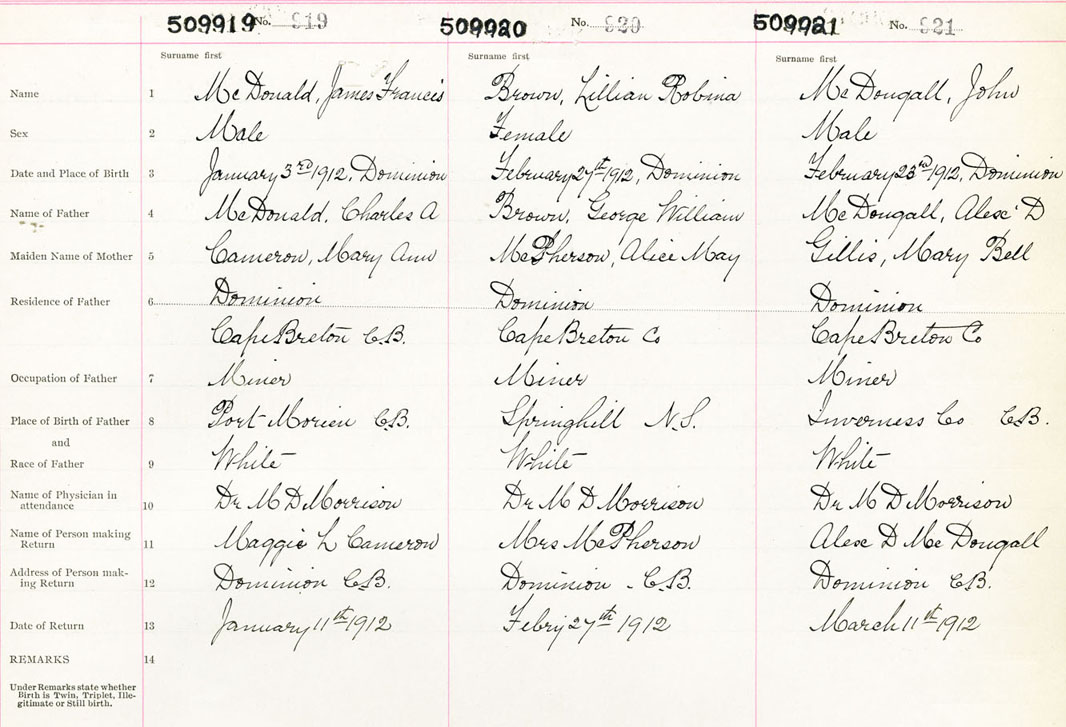 509919 No. 919 509920 No. 920 509921 No. 921
Surname first Surname first Surname first
Name 1 McDonald, James Francis Brown, Lillian Robina McDougall, John
Sex 2 Male Female Male
Date and Place of Birth 3 January 3rd 1912, Dominion February 27th 1912, Dominion February 23rd 1912, Dominion
Name of Father 4 McDonald, Charles A Brown, George William McDougall, Alex D
Maiden Name of Mother 5 Cameron, Mary Ann McPherson, Alice May Gillis, Mary Bell
Residence of Father 6 Dominion Dominion Dominion
Cape Breton C.B. Cape Breton Co Cape Breton Co
Occupation of Father 7 Miner Miner Miner
Place of Birth of Father 8 Port Morien C.B. Springhill N.S. Inverness Co C.B.
and
Race of Father 9 White White White
Name of Physician in
attendance 10 Dr M D Morrison Dr M D Morrison Dr M D Morrison
Name of Person making
Return 11 Maggie L Cameron Mrs McPherson Alex D McDougall
Address of Person mak-
ing Return 12 Dominion C.B. Dominion - C.B. Dominion C.B.
Date of Return 13 January 11th 1912 Febry 27th 1912 March 11th 1912
REMARKS 14
Under Remarks state whether
Birth is Twin, Triplet, Ille-
gitimate or Still birth.